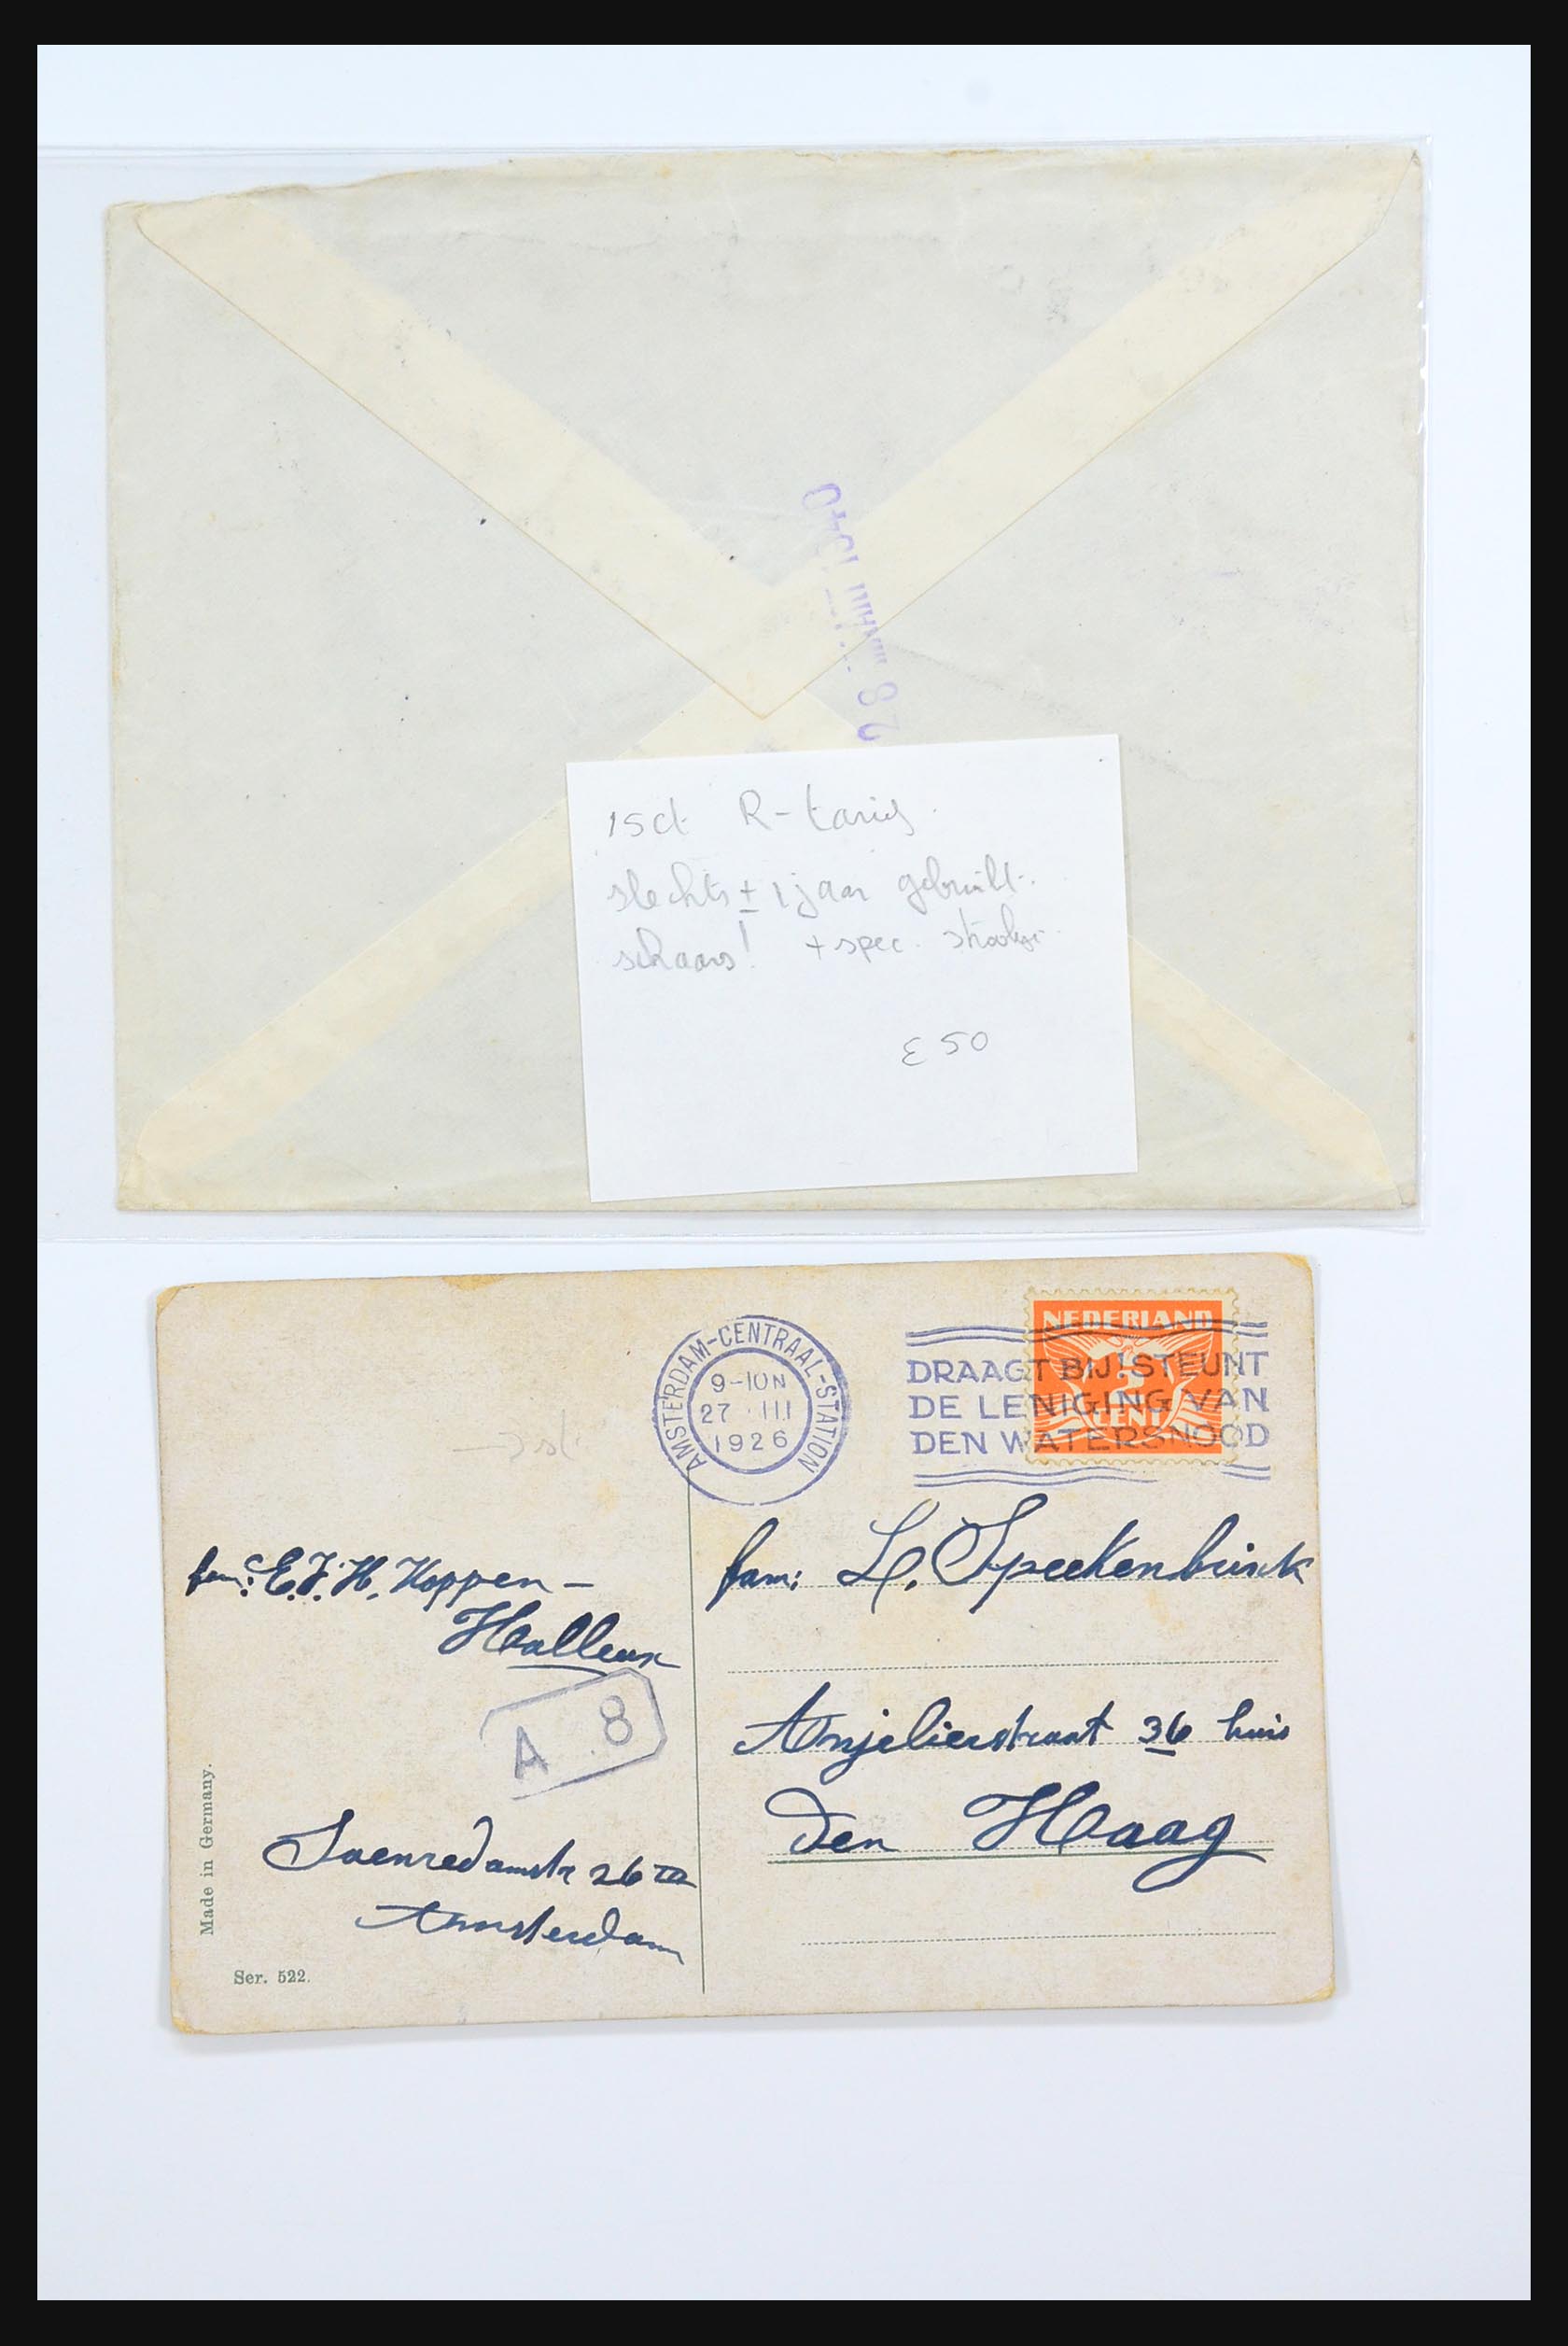 28 JUNI 1940
15ct R-tarief
slechts ± 1 jaar gebruikt.
schaars! + spec. strookje
€ 50
AMSTERDAM-CENTRAAL-STATION
9-10N
27 III
1926
NEDERLAND
CENT
DRAAGT BIJ! STEUNT
DE LENIGING VAN
DEN WATERSNOOD
fam: E.J.H. Koppen-
Halleux
A 8
Saenredamstr 26 III
Amsterdam
fam: L. Speekenbrink
Anjelierstraat 36 huis
Den Haag
Made in Germany.
Ser. 522.